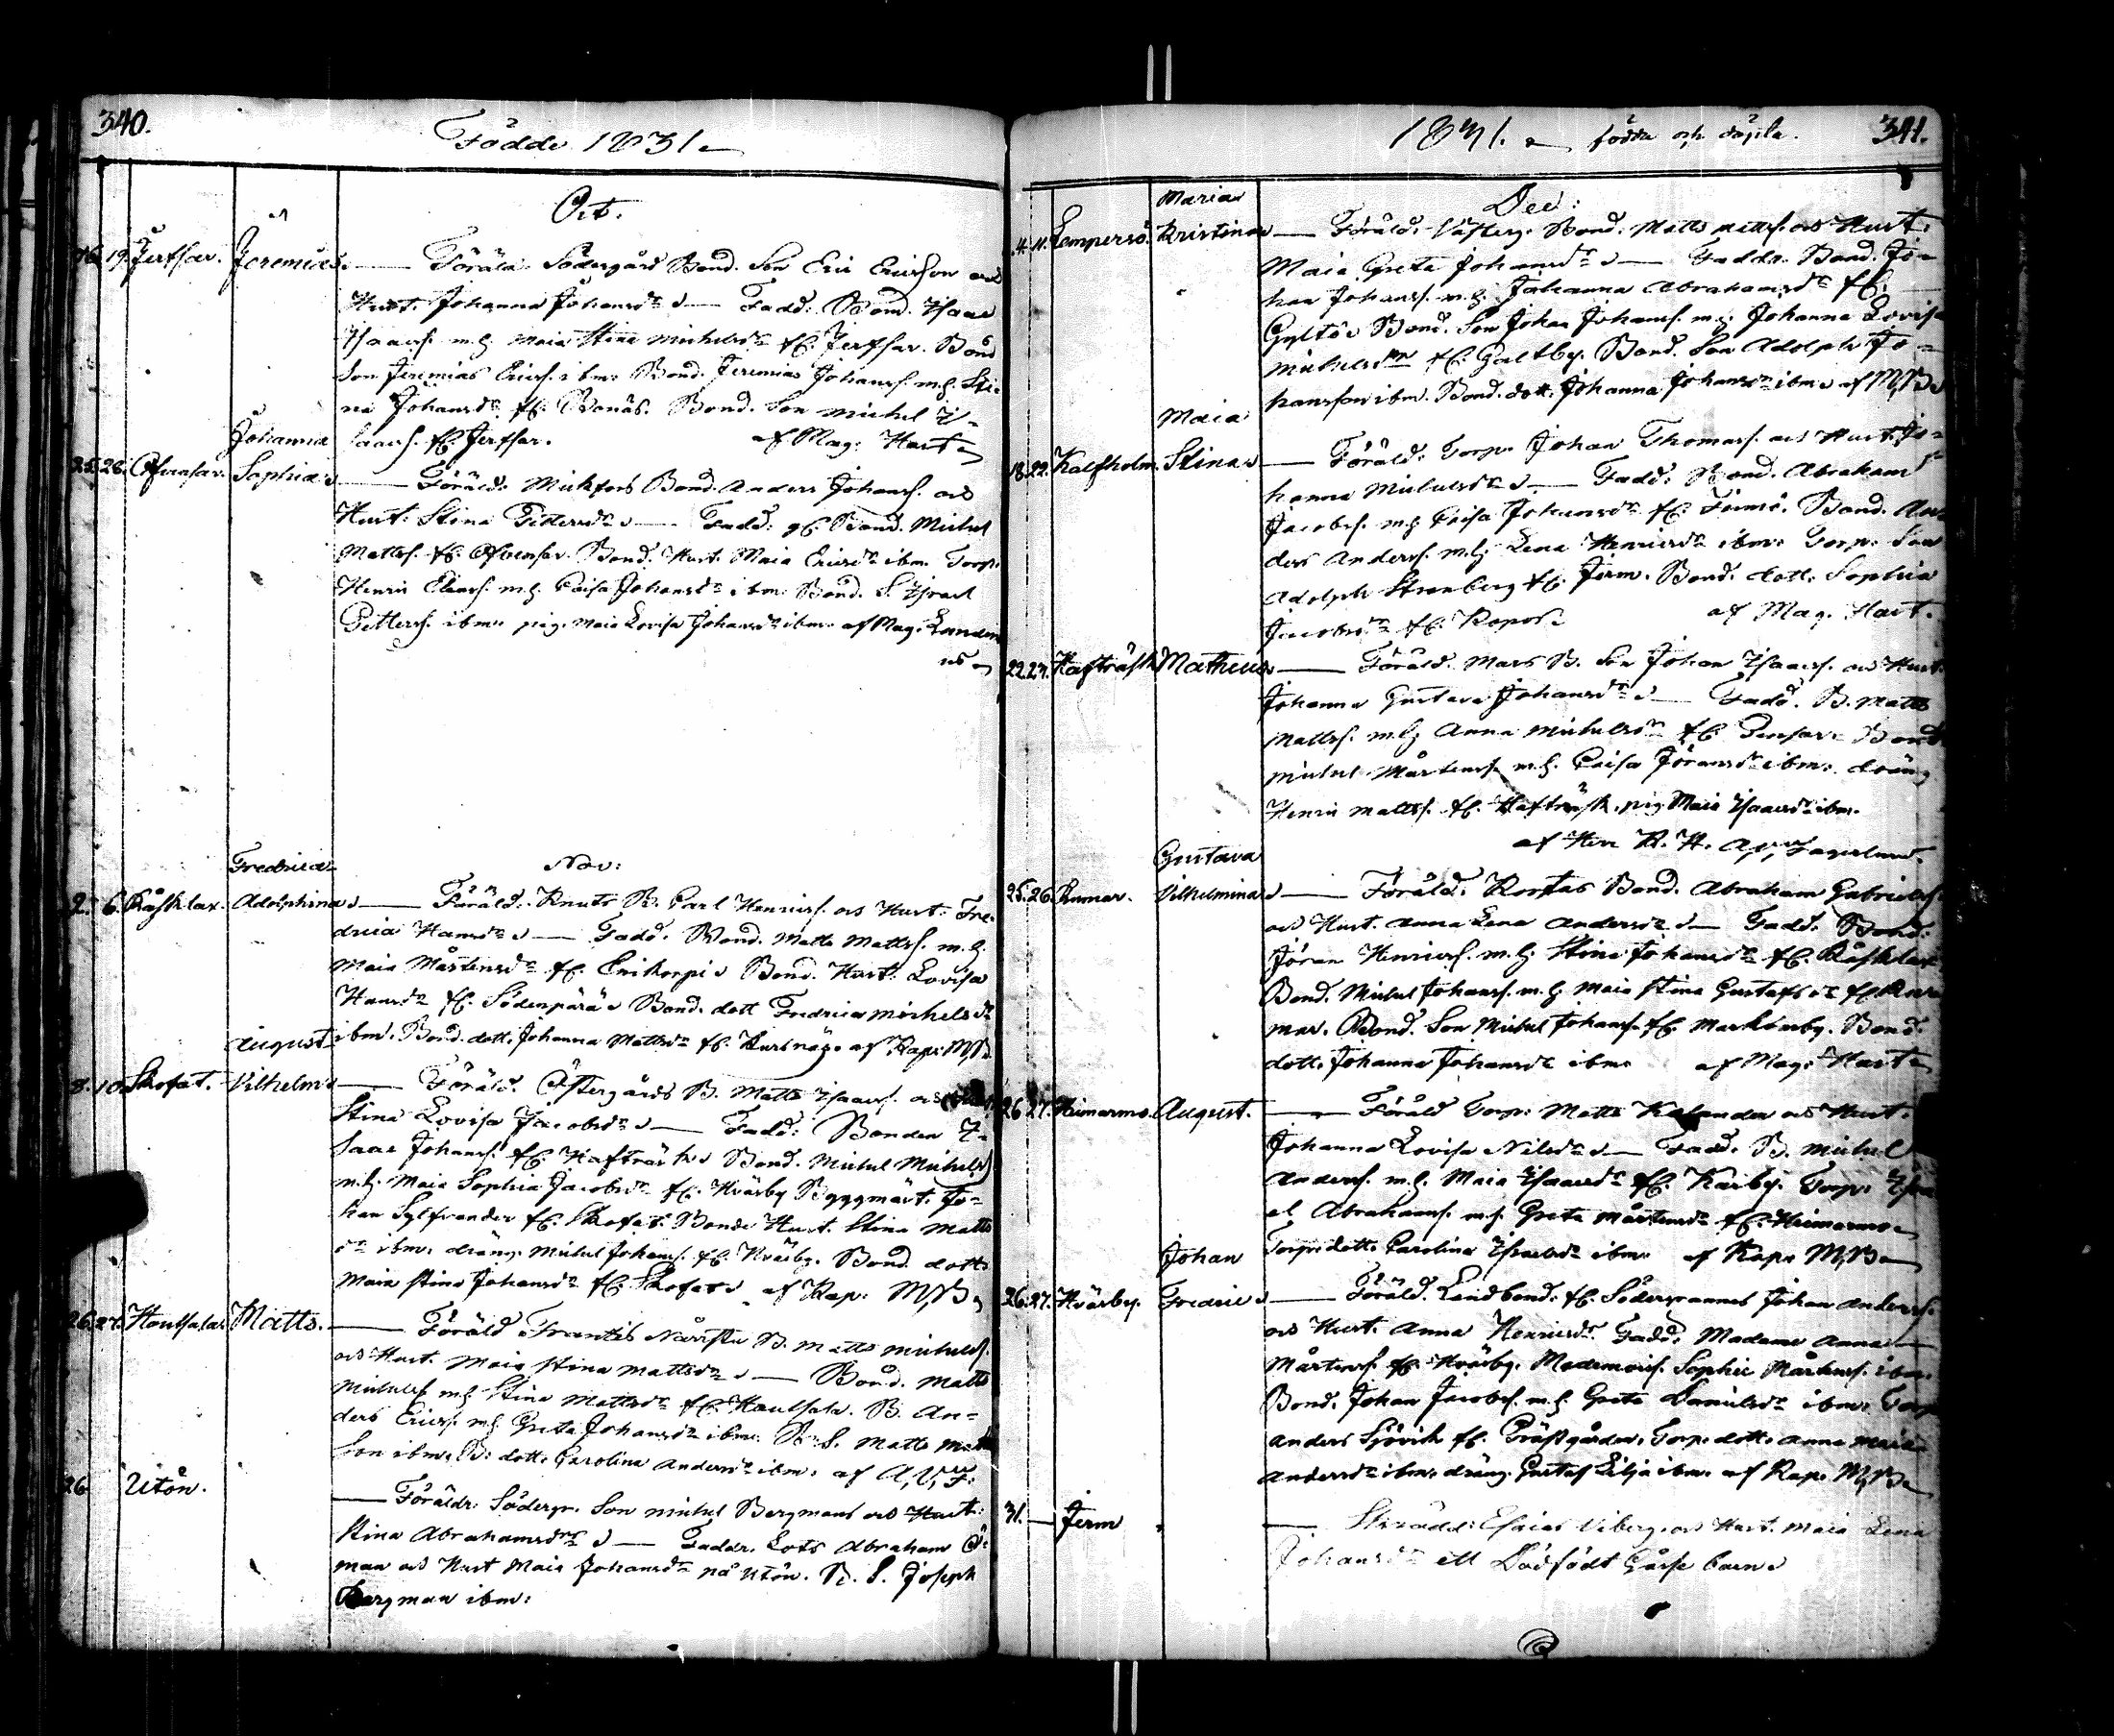 340.
Födde 1831
Oct.
16. 19. Jerfsar. Jeremias. Föräld. Södergård Bond. Son Eric Ericsson och
Hust. Johanna Johansdr Fadd: Bond. Isaac
Isaacs. m.h. Maia Stina Michelsdr fr. Jerfsar. Bond
Son Jeremias Erics. ibm: Bond. Jeremias Johans. m.h. Sti-
na Johansdr fr. Bonäs. Bond. Son Michel I-
saacs. fr. Jerfsar. af Mag. Hart
Johanna
25. 26. Sophia Föräld: Mickfors Bond. Anders Johans. och
Hust: Stina Pettersdr Fadd: Bond. Michel
Matts. fr. Bond. Hust. Maia Ericsdr ibm. Torp.
Henric m.h. Caisa Johansdr ibm: Bond. S. Israel
Petters. ibm: pig. Maia Lovisa Johansdr ibm: af Mag. Lunden
us
Nov:
Fredrica
2. 6. Kåsklax. Adolphina Föräld: Knuts B. Carl Henrics. och Hust: Fre-
drica Hansdr Fadd. Bond. Matts Matts. m.h.
Maia Mårtensdr fr. Bond. Hust: Lovisa
Hansdr fr. Söderpärä Bond. dott Fredrica Michelsdr
ibm. Bond. dott. Johanna Mattsdr fr. af Kap: M,B
August
8. 10. Skofat. Vilhelm Föräld. Östergårds B. Matts Isaacs. och
Stina Lovisa Jacobsdr Fadd: Bonden I-
saac Johans. fr. Hafträsk Bond. Michel Michels
m.h. Maia Sophia Jacobsdr fr. Kväsby Byggmäst. Jo-
han Sylfvander fr. Skofat. Bonde Hust. Stina Matts
dr ibm: dräng. Michel Johans. fr. Kväsby. Bond. dott:
Maia Stina Johansdr fr. Skofat af Kap: M,B
26. 27. Houtsala. Matts. Föräld Frantsis B. Matts Michels.
och Hust. Maia Stina Mattsdr Bond. Matts
Michels. m.h. Stina Mattsdr fr. Houtsala. B. An-
ders Erics. m.h. Greta Johansdr ibm: B. S. Matts Matts
son ibm. B: dott. Carolina Andersdr ibm: af A, V, F.
26. Utön. Föräldr: Södergr. Son Michel Bergman och Hust:
Stina Abrahamsdr Faddr. Lots Abraham Ö-
man och Hust Maia Johansdr på Utön. B. S. Joseph
Bergman ibm:
1831. födda och döpta. 341.
Dec:
Maria
4. 11. Lempersö. Kristina Föräld. Västerg. Bond. Matts Matts. och Hust.
Maia Greta Johansdr Fadda. Bond. Jo-
han Johans. m.h. Johanna Abrahamsdr fr.
Gyltö Bond. Son Johan Johans. m.h. Johanna Lovisa
Michelsdr fr. Galtby. Bond. Son Adolph Jo-
hansson ibm. Bond. dott. Johanna Johansdr ibm af M,B
Maia
18. 22. Kalfholm. Stina Föräld: Torp. Johan Thomas. och Hust. Jo-
hanna Michelsdr Fadd: Bond. Abraham
Jacobs. m.h. Caisa Johansdr fr. Bond. An-
ders Anders. m.h. Lena Henricsdr ibm: Torp: Son
Adolph Strenberg fr. Jerm. Bond. dott: Sophia
Jacobsdr fr. af Mag. Hart.
22. 27. Hafträsk Matheus Föräld. Mars B. Son Johan Isaacs. och Hust.
Johanna Gustava Johansdr Fadd. B. Matts
Matts. m.h. Anna Michelsdr fr. Bond
Michel Mårtens. m.h. Caisa Jöransdr ibm: dräng
Henric Matts. fr. Hafträsk. pig Maia Isaacsdr ibm.
af Herr Fagerlund.
Gustava
25. 26. Rumar. Vilhelmina Föräld. Korstas Bond. Abraham Gabriels.
och Hust. Anna Lena Andersdr Fadd. Bond.
Jöran Henrics. m.h. Stina Johansdr fr. Kåsklax
Bond. Michel Johans. m.h. Maia Stina Gustafsdr fr. Ru-
mar. Bond. Son Michel Johans. fr. Markomby. Bond.
dott. Johanna Johansdr ibm: af Mag. Hart
26. 27. Heimarmo. August. Föräld Torp: Matts Kalander och Hust.
Johanna Lovisa Nilsdr Fadd. B. Michel
Anders. m.h. Maia Isaacsdr fr. Kärby. Torp: Isra-
el Abrahams. m.h. Greta Mårtensdr fr. Heimarmo
Torp: dott. Carolina Israelsdr ibm: af Kap: M,B
Johan
26. 27. Kväsby. Fredric Föräld. Landbond. fr. Johan Anders.
och Hust. Anna Henricsdr Fadd. Madame Anna
Mårtens. fr. Kväsby. Mademois. Sophie Mårtens. ibm.
Bond. Johan Jacobs. m.h. Greta Danielsdr ibm: Torp
Anders Sjövik fr. Prästgården. Torp. dott. Anna Maia
Andersdr ibm. dräng. Gustaf Lilja ibm. af Kap: M,B
31. Jerm Skrädd: Esaias Viberg och Hust. Maia Lena
Johansdr ett Dödfödt Gåsse barn